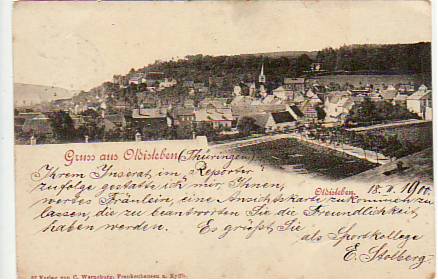 Gruss aus Oldisleben (Thüringen)
Ihrem Inserat im "Reporter"
zufolge gestatte ich mir, Ihnen,
Oldisleben. 18. II. 1900.
wertes Fräulein, eine Ansichtskarte zukommen zu
lassen, die zu beantworten Sie die Freundlichkeit
haben werden. Es grüßt Sie
als Sportkollege
E. Stolberg.
Verlag von C. Werneburg, Frankenhausen a. Kyffh.